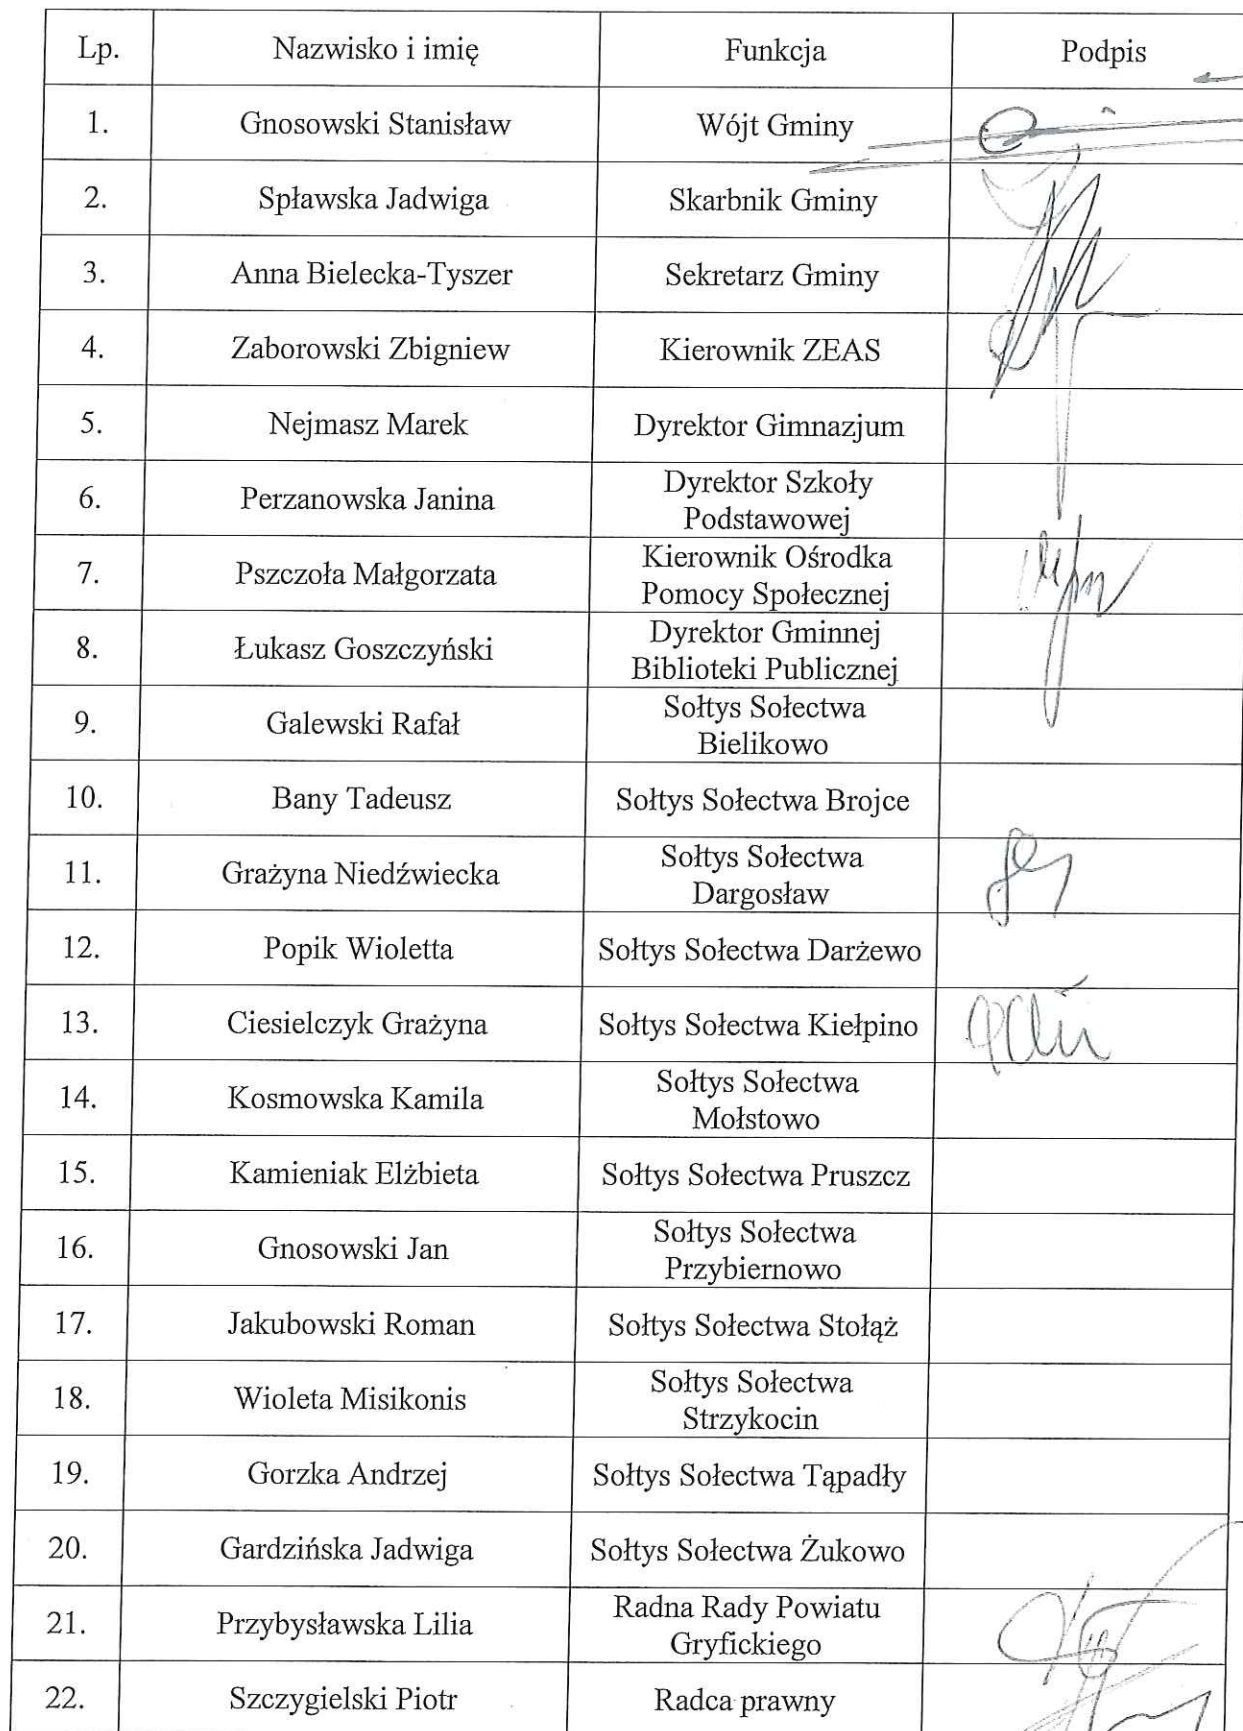 Lp. Nazwisko i imię Funkcja Podpis
1. Gnosowski Stanisław Wójt Gminy
2. Spławska Jadwiga Skarbnik Gminy
3. Anna Bielecka-Tyszer Sekretarz Gminy
4. Zaborowski Zbigniew Kierownik ZEAS
5. Nejmasz Marek Dyrektor Gimnazjum
6. Perzanowska Janina Dyrektor Szkoły
Podstawowej
7. Pszczoła Małgorzata Kierownik Ośrodka
Pomocy Społecznej
8. Łukasz Goszczyński Dyrektor Gminnej
Biblioteki Publicznej
9. Galewski Rafał Sołtys Sołectwa
Bielikowo
10. Bany Tadeusz Sołtys Sołectwa Brojce
11. Grażyna Niedźwiecka Sołtys Sołectwa
Dargosław
12. Popik Wioletta Sołtys Sołectwa Darżewo
13. Ciesielczyk Grażyna Sołtys Sołectwa Kiełpino
14. Kosmowska Kamila Sołtys Sołectwa
Mołstowo
15. Kamieniak Elżbieta Sołtys Sołectwa Pruszcz
16. Gnosowski Jan Sołtys Sołectwa
Przybiernowo
17. Jakubowski Roman Sołtys Sołectwa Stołąż
18. Wioleta Misikonis Sołtys Sołectwa
Strzykocin
19. Gorzka Andrzej Sołtys Sołectwa Tąpadły
20. Gardzińska Jadwiga Sołtys Sołectwa Żukowo
21. Przybysławska Lilia Radna Rady Powiatu
Gryfickiego
22. Szczygielski Piotr Radca prawny